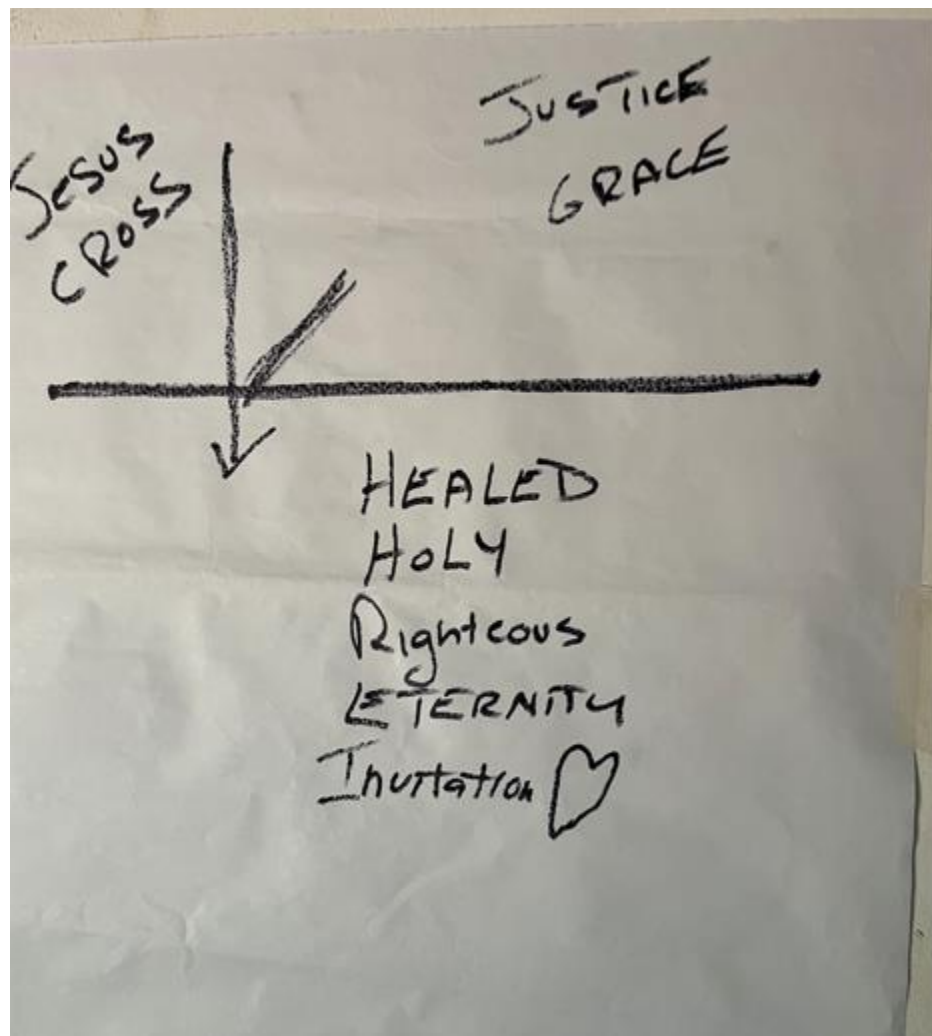 JESUS
CROSS
JUSTICE
GRACE
HEALED
HOLY
Righteous
ETERNITY
Invitation